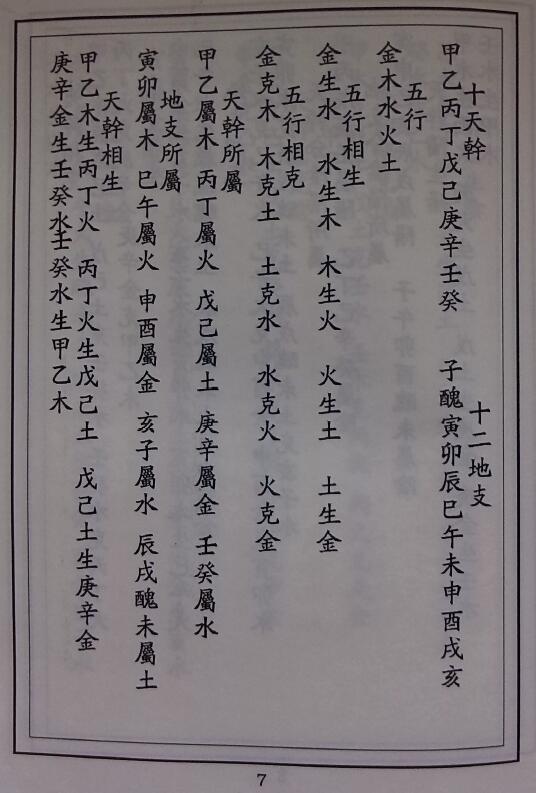 十天幹　十二地支
甲乙丙丁戊己庚辛壬癸　子醜寅卯辰巳午未申酉戌亥
五行
金木水火土
五行相生
金生水　水生木　木生火　火生土　土生金
五行相克
金克木　木克土　土克水　水克火　火克金
天幹所屬
甲乙屬木　丙丁屬火　戊己屬土　庚辛屬金　壬癸屬水
地支所屬
寅卯屬木　巳午屬火　申酉屬金　亥子屬水　辰戌醜未屬土
天幹相生
甲乙木生丙丁火　丙丁火生戊己土　戊己土生庚辛金
庚辛金生壬癸水壬癸水生甲乙木
7